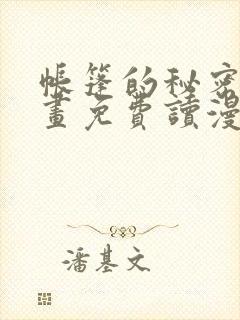 帳篷的秘密
畫免費讀漫
潘基文